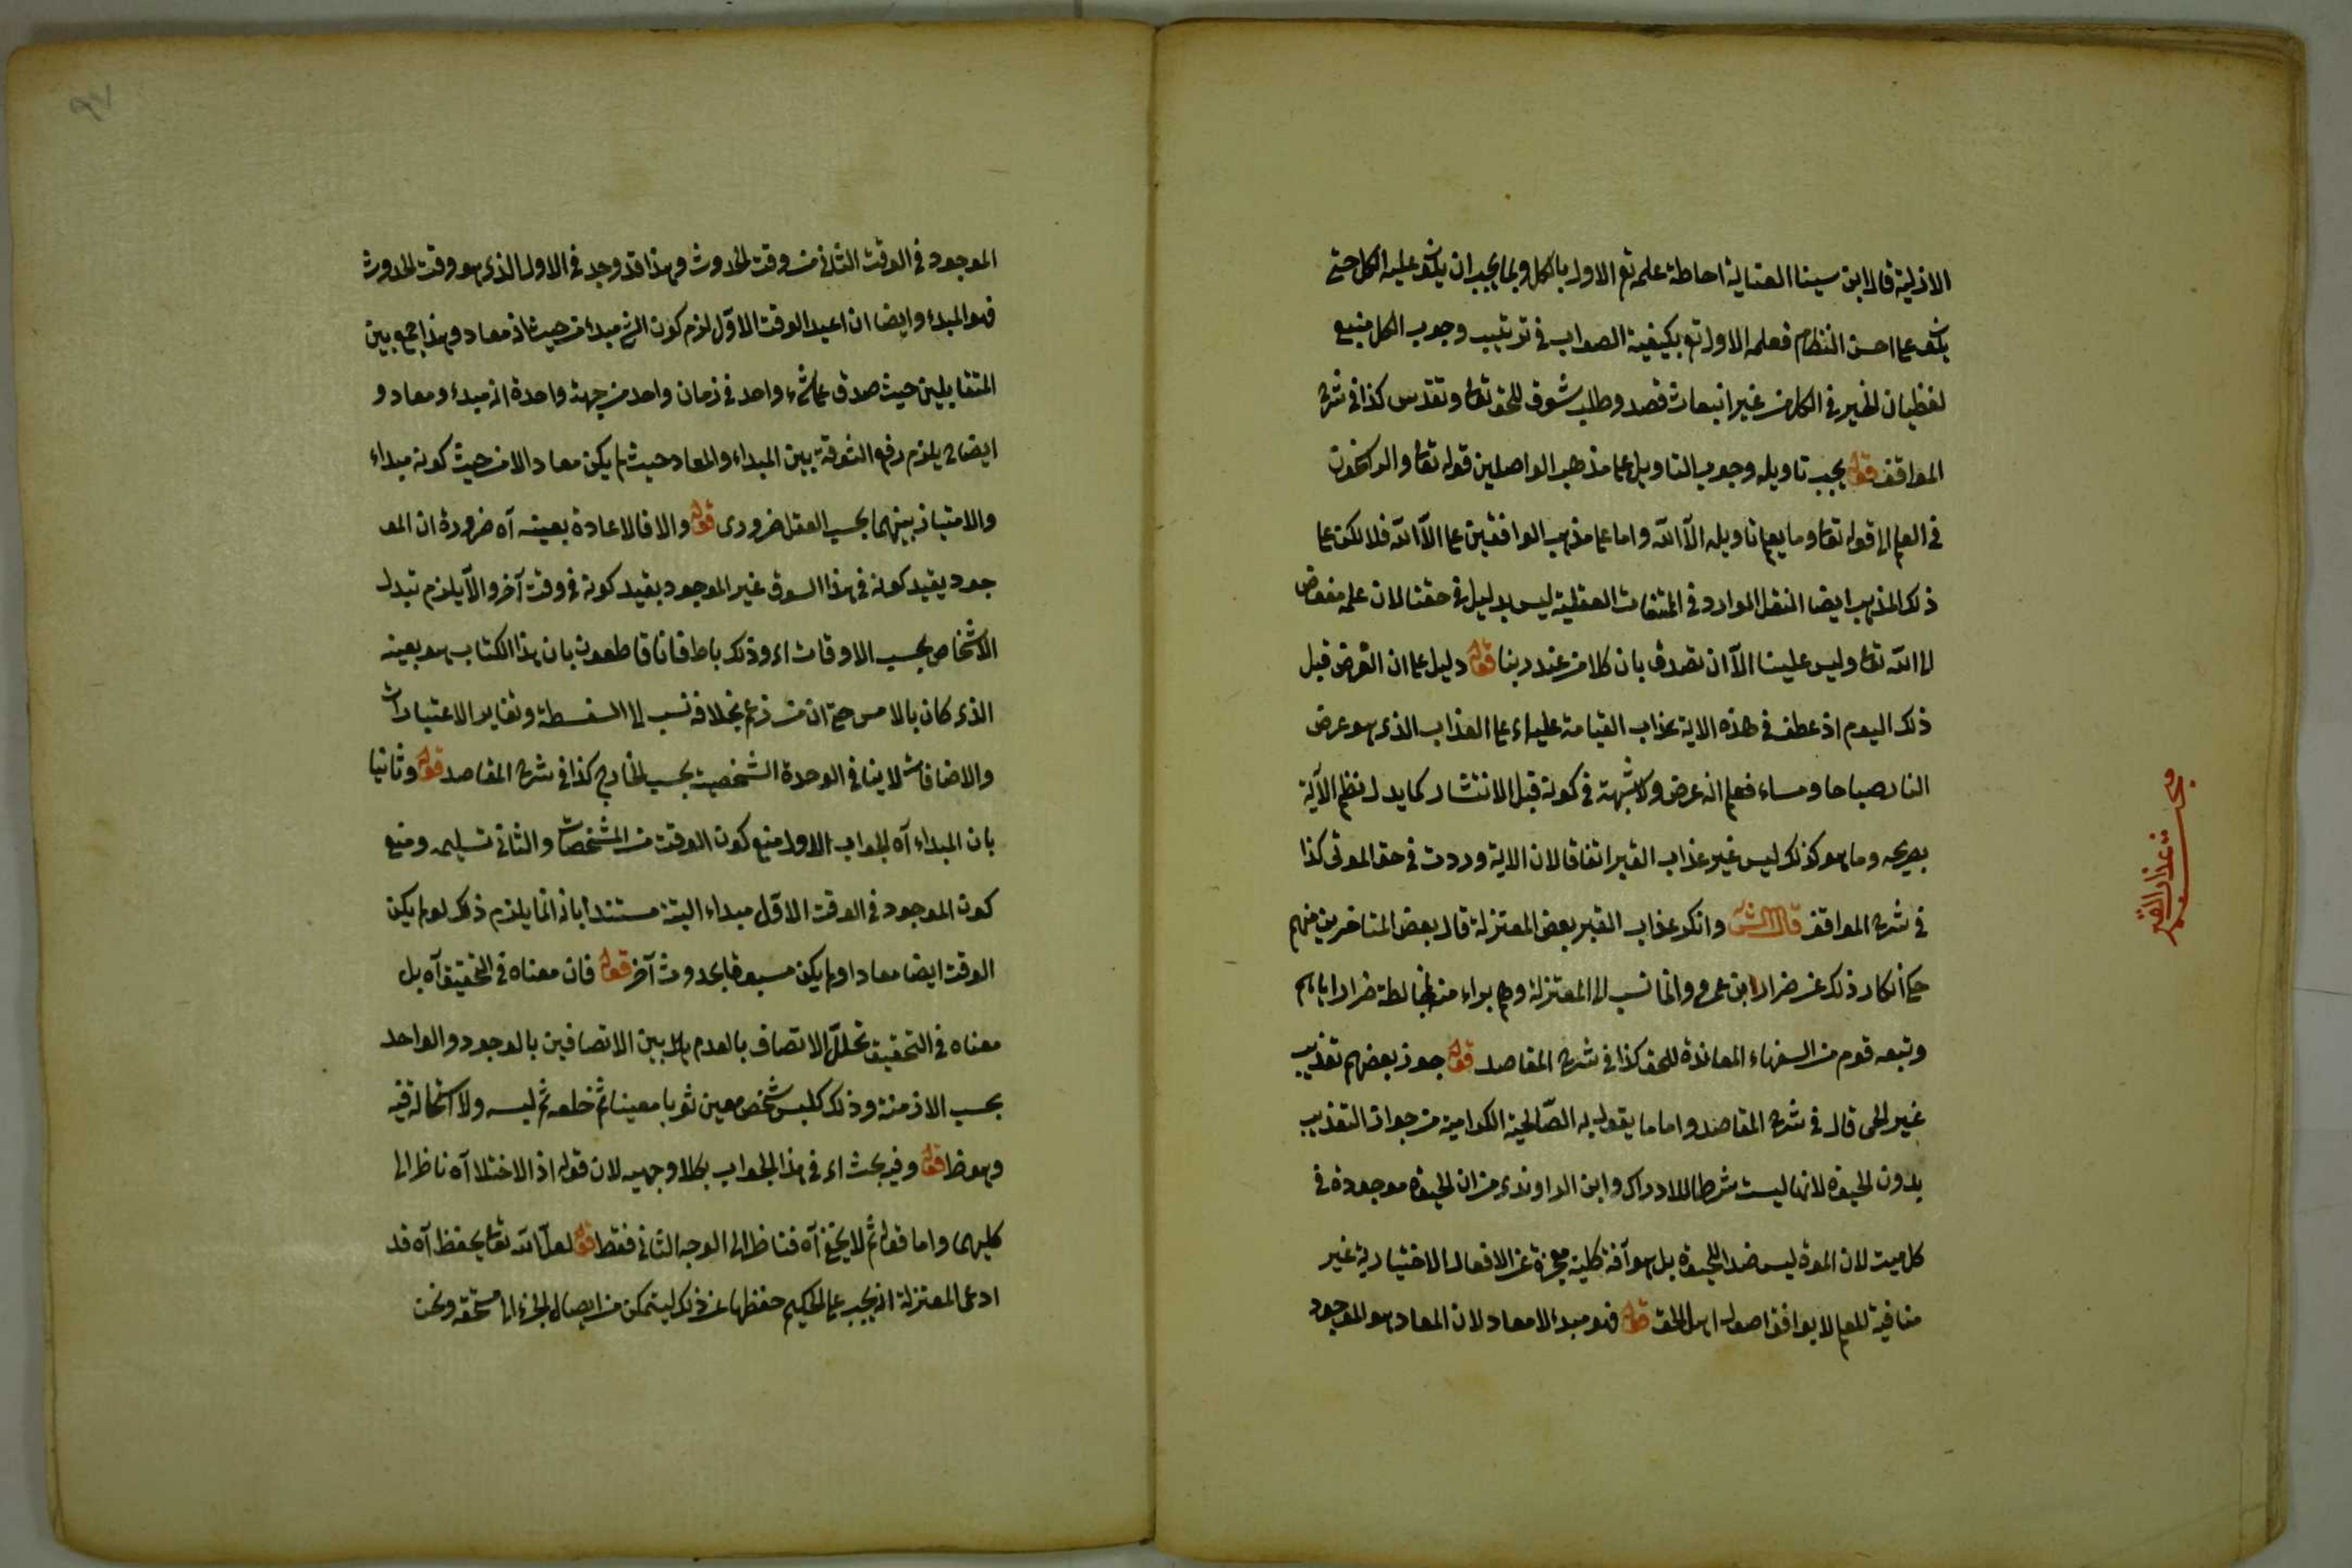 الازلية قال ابن سينا العناية احاطة علمه تع الاول بالكل وبما يجب ان يكون عليه الكل حتى
يكون على احسن النظام فعلمه الاول تع بكيفية الصواب في ترتيب وجوب الكل منبع
لفيضان الخير في الكل من غير انبعاث قصد وطلب شوق للحق تعا وتقدس كذا في شرح
المواقف قوله يجب تاويله وجوب التاويل على مذهب الواصلين قوله تعا والراسخون
في العلم الى قوله تعا وما يعلم تاويله الا الله واما على مذهب الواقفين على الا الله فلا لكن على
ذلك المذهب ايضا النقل الوارد في المتفات العقلية ليس بدليل في حقنا لان علمه مفوض
الى الله تعا وليس علينا الا ان نصدق بان كلا من عند ربنا قوله دليل على ان العرض قبل
ذلك اليوم اذ عطف في هذه الاية عذاب القيامة عليه اى على العذاب الذى هو عرض
النار صباحا ومساء فعلم انه عرض ولا شبهة في كونه قبل الانتشار كما يدل نظم الآية
بصريحه وما هو كذلك ليس غير عذاب القبر اتفاقا لان الاية وردت في حق الموتى كذا
في شرح المواقف قال الش وانكر عذاب القبر بعض المعتزلة قال بعض المتاخرين منهم
حكى انكار ذلك عن ضرار ابن عمرو وانما نسب الى المعتزلة وهم براء منه لمخالطة ضرار اياهم
وتبعه قوم من السفهاء المعاندة للحق كذا في شرح المقاصد قوله جوز بعضهم تعذيب
غير الحى قال في شرح المقاصد واما ما يقول به الصالحية الكرامية من جواز التعذيب
بدون الحيوة لانها ليست شرطا للادراك وابن الراوندى من ان الحيوة موجودة في
كل ميت لان الموت ليس ضد الحيوة بل هو آفة كلية معجزة عن الافعال الاختيارية غير
منافية للعلم لا يوافق اصول اهل الحق قوله فهو مبدء لا معاد لان المعاد هو الموجود
وبحث عذاب القبر
الموجود في الوقت الثاني من وقت الحدوث وهذا قد وجد في الاول الذى هو وقت الحدوث
فهو المبدء وايضا ان اعيد الوقت الاول لزم كون الشئ مبدء من حيث انه معاد وهذا جمع بين
المتقابلين حيث صدق على شئ واحد في زمان واحد من جهة واحدة انه مبدء ومعاد و
ايضا ح يلزم رفع التفرقة بين المبداء والمعاد حيث لم يكن معاد الا من حيث كونه مبداء
والامتياز بينهما بحسب العقل ضرورى قوله والا فالاعادة بعينه آه ضرورة ان المو
جود بقيد كونه في هذا الوقت غير الموجود بقيد كونه في وقت آخر والا يلزم تبدل
الاشخاص بحسب الاوقات اى وذلك باط فانا قاطعون بان هذا الكتاب هو بعينه
الذى كان بالامس حتى ان من زعم بخلافه نسب الى السفسطة وتغاير الاعتبارات
والاضافات لا ينافي الوحدة الشخصية بحسب الخارج كذا في شرح المقاصد قوله وثانيا
بان المبداء آه الجواب الاول منع كون الوقت من المشخصات والثاني تسليمه ومنع
كون الموجود في الوقت الاول مبداء البتة مستندا بانه انما يلزم ذلك لو لم يكن
الوقت ايضا معادا ولم يكن مسبوقا بحدوث آخر قوله فان معناه في التحقيق آه بل
معناه في التحقيق تخلل الاتصاف بالعدم بل بين الاتصافين بالوجود والواحد
بحسب الازمنة وذلك كلبس شخص معين ثوبا معينا ثم خلعه ثم لبسه ولا استحالة فيه
وهو ظ قوله وفيه بحث اى في هذا الجواب بكلا وجهيه لان قوله اذ الاختلا آه ناظر الى
كليهما واما قوله ثم لا يخفى آه فناظر الى الوجه الثاني فقط قوله لعل الله تعا يحفظ آه قد
ادعى المعتزلة انه يجب على الحكيم حفظها عن ذلك ليتمكن من ايصال الجزاء الى مستحقه ونحن